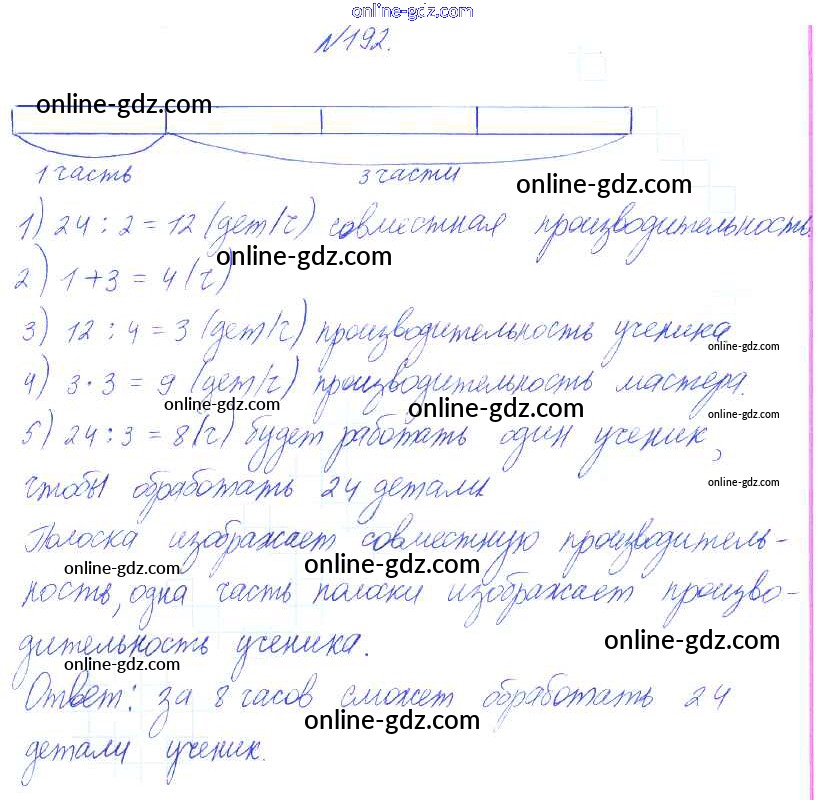 online-gdz.com
№192.
online-gdz.com
1 часть 3 части
online-gdz.com
1) 24 : 2 = 12 (дет/ч) совместная производительность.
online-gdz.com
2) 1 + 3 = 4 (ч)
3) 12 : 4 = 3 (дет/ч) производительность ученика
online-gdz.com
4) 3 · 3 = 9 (дет/ч) производительность мастера.
online-gdz.com online-gdz.com online-gdz.com
5) 24 : 3 = 8 (ч) будет работать один ученик,
чтобы обработать 24 детали
online-gdz.com
Полоска изображает совместную производитель-
online-gdz.com
ность, одна часть полоски изображает произво-
дительность ученика.
online-gdz.com
online-gdz.com
Ответ: за 8 часов сможет обработать 24
online-gdz.com
детали ученик.